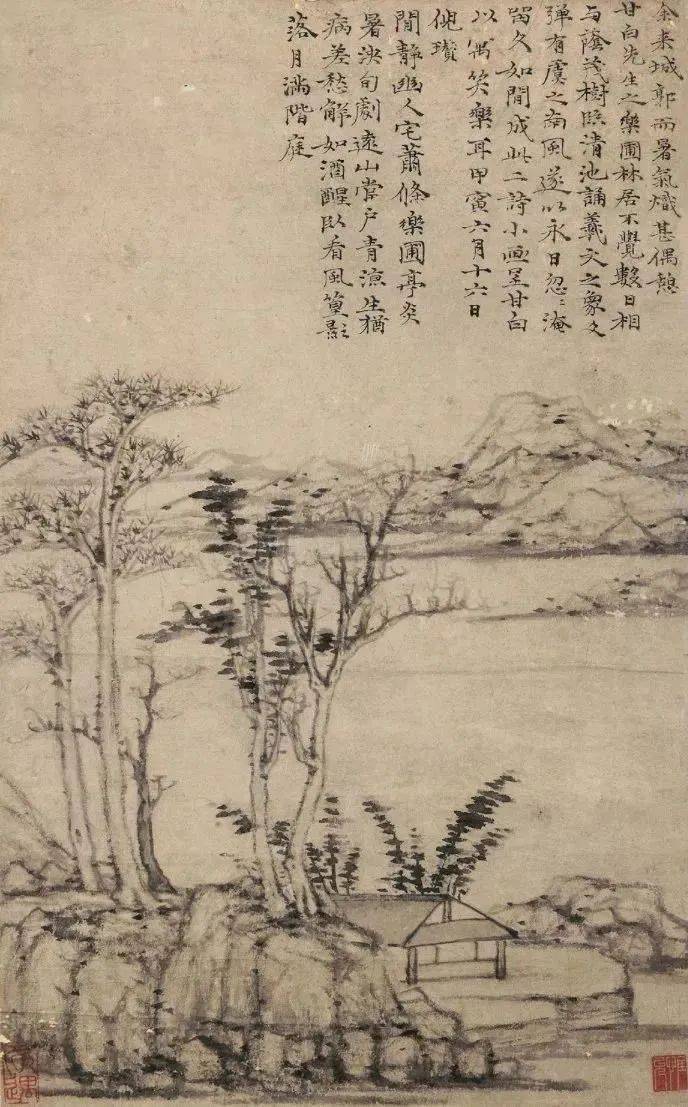 余来城郭而暑氣熾甚偶憩
甘白先生之樂圃林居不覺數日相
与蔭茂樹臨清池誦羲文之象爻
弹有虞之南風遂以永日忽〻淹
留久如閒成此二詩小画呈甘白
以寓笑樂耳甲寅六月十六日
倪瓚
閒靜幽人宅蕭條樂圃亭炎
暑浹旬劇遠山當户青涼生猶
病差愁解如酒醒臥看風篁影
落月滿階庭